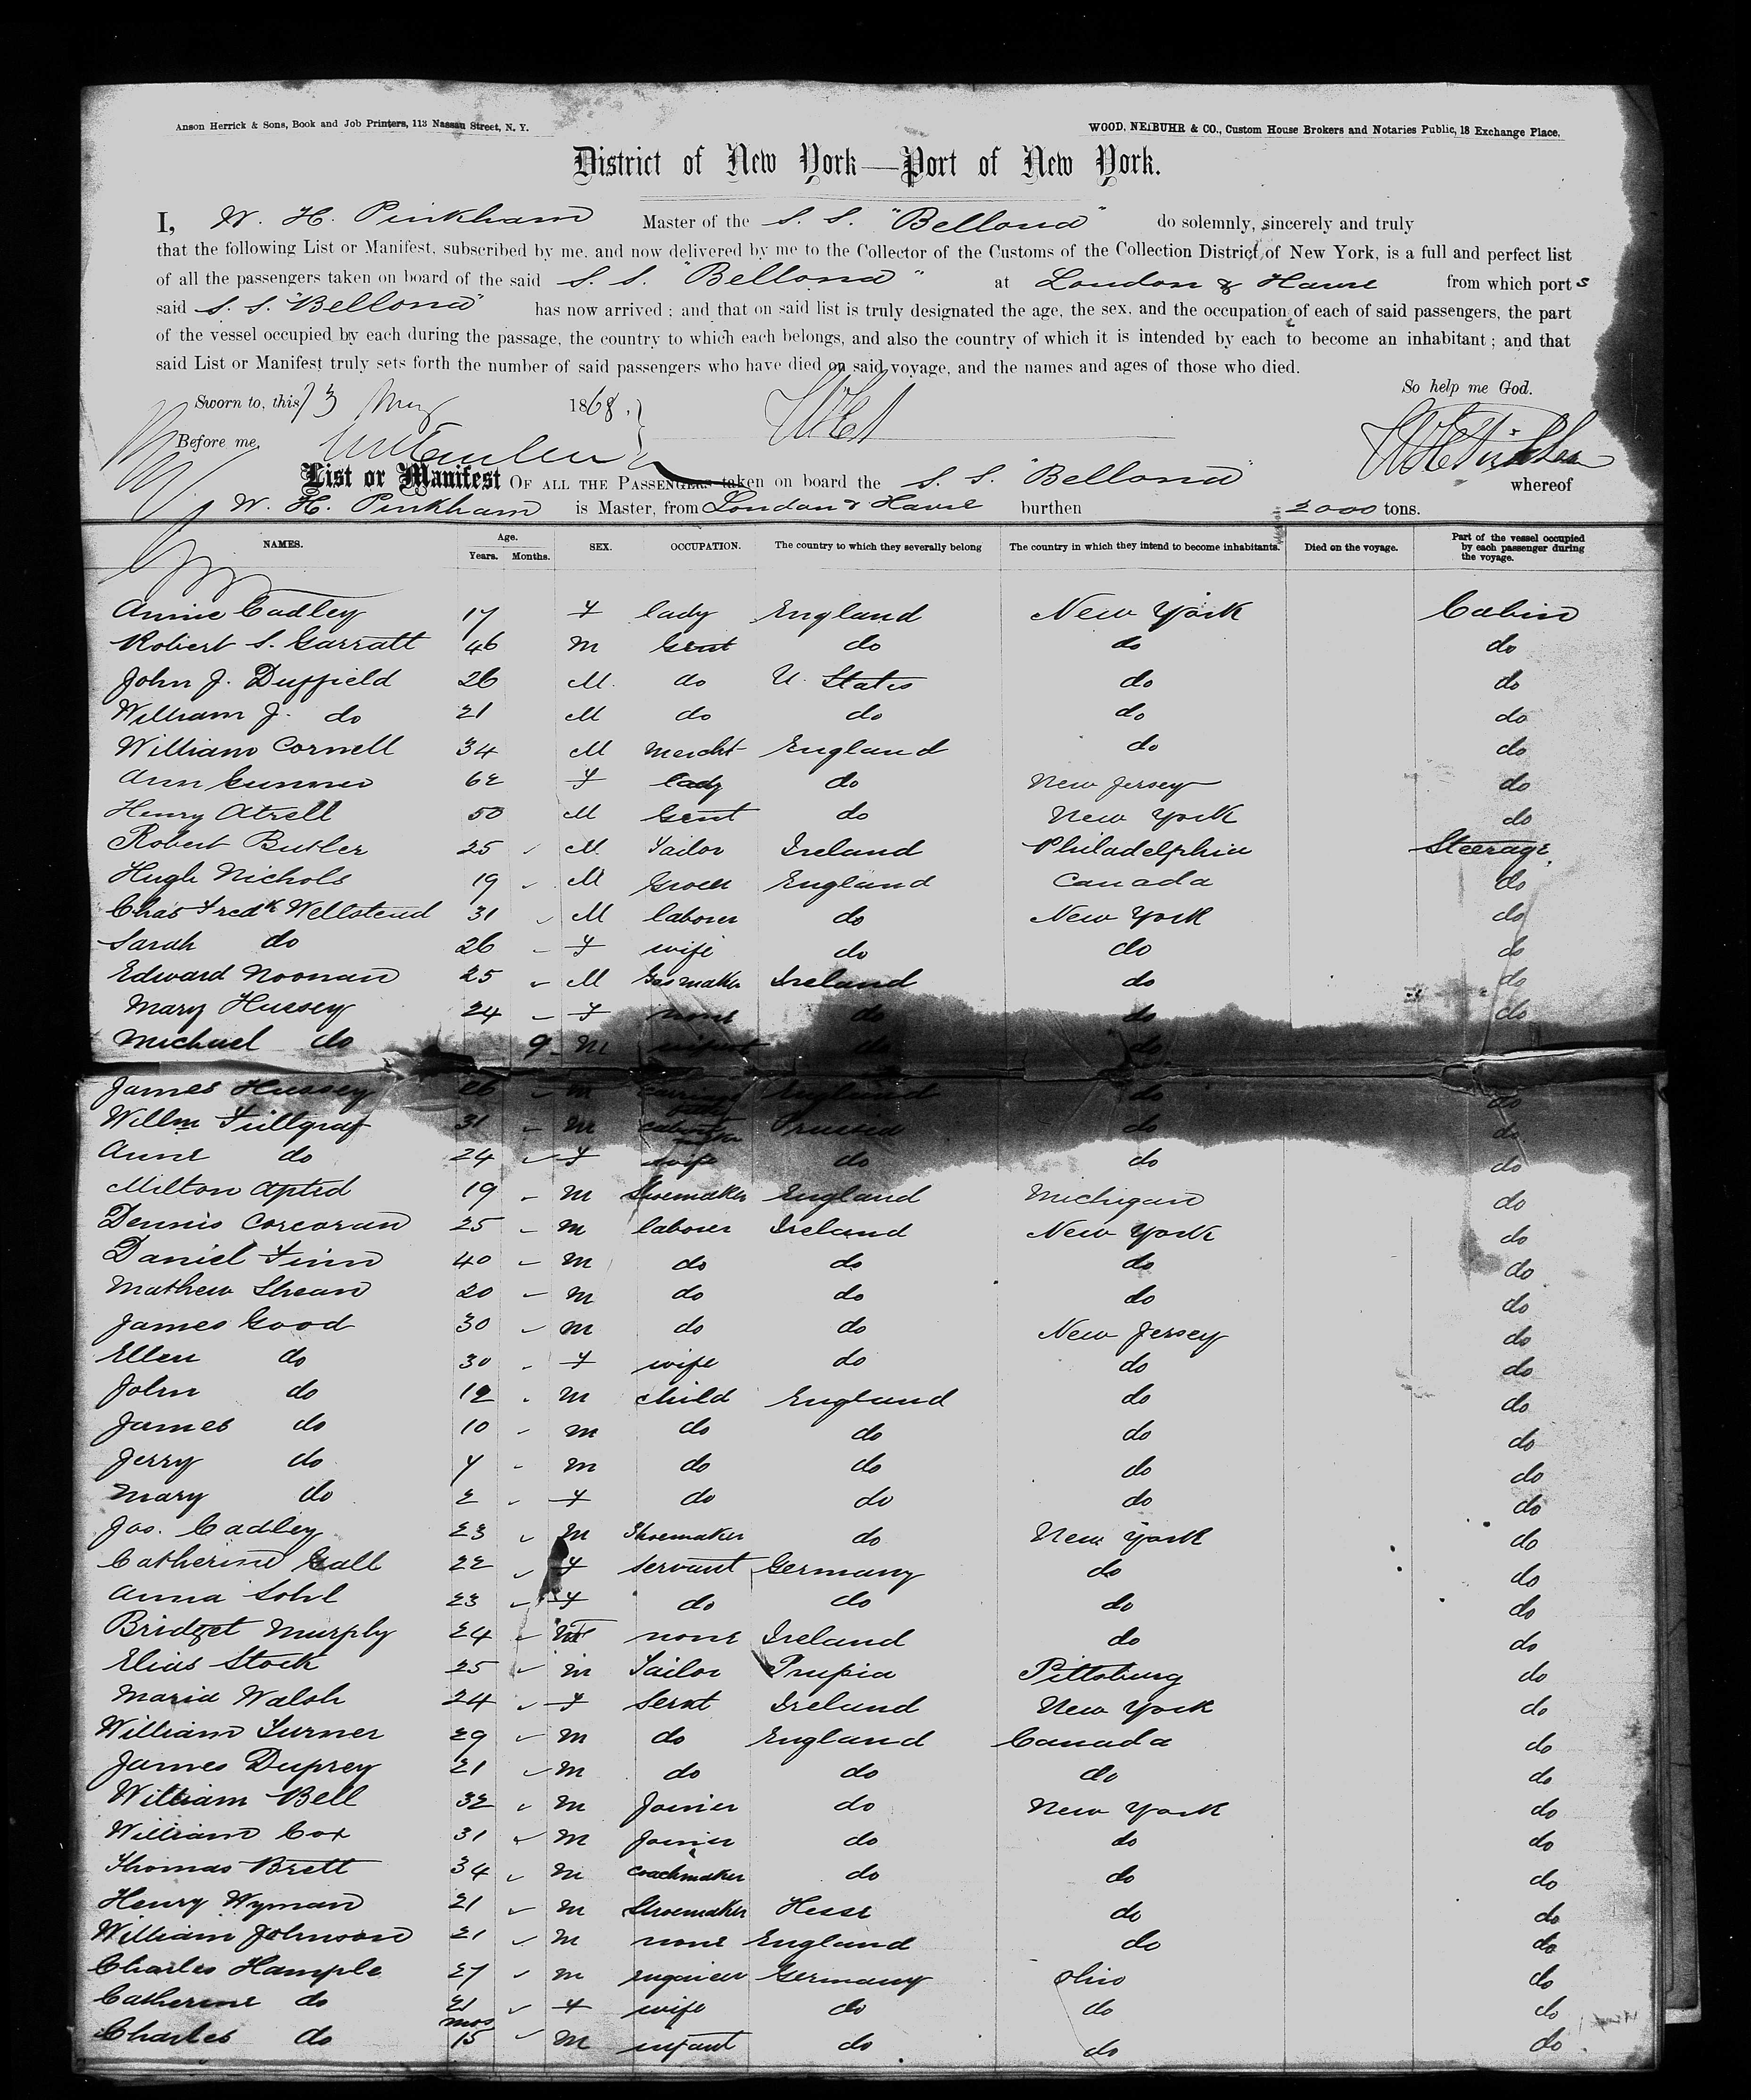 Anson Herrick & Sons, Book and Job Printers, 113 Nassau Street, N. Y. WOOD, NEIBUHR & CO., Custom House Brokers and Notaries Public, 18 Exchange Place.
District of New York—Port of New York.
I, W. H. Pinkham Master of the S. S. "Bellona" do solemnly, sincerely and truly
that the following List or Manifest, subscribed by me, and now delivered by me to the Collector of the Customs of the Collection District of New York, is a full and perfect list
of all the passengers taken on board of the said S. S. "Bellona" at London & Havre from which ports
said S. S. "Bellona" has now arrived; and that on said list is truly designated the age, the sex, and the occupation of each of said passengers, the part
of the vessel occupied by each during the passage, the country to which each belongs, and also the country of which it is intended by each to become an inhabitant; and that
said List or Manifest truly sets forth the number of said passengers who have died on said voyage, and the names and ages of those who died.
So help me God.
Sworn to, this 13 May 1868.
Before me,
List or Manifest OF ALL THE PASSENGERS taken on board the S. S. "Bellona" whereof
W. H. Pinkham is Master, from London & Havre burthen 2000 tons.
NAMES. Age. Years. Months. SEX. OCCUPATION. The country to which they severally belong The country in which they intend to become inhabitants. Died on the voyage. Part of the vessel occupied by each passenger during the voyage.
Annie Cadley 17 f lady England New York Cabin
Robert S. Garratt 46 M Gent do do do
John J. Duffield 26 M. do U. States do do
William J. do 21 M do do do do
William Cornell 34 M Mercht England do do
Ann Gunner 62 f lady do New Jersey do
Henry Atrell 50 M Gent do New York do
Robert Butler 25 M. Tailor Ireland Philadelphia Steerage
Hugh Nichols 19 M Grocer England Canada do
Chas Fredk Wellstend 31 M laborer do New York do
Sarah do 26 f wife do do do
Edward Noonan 25 M Gasmaker Ireland do do
Mary Hussey 24 f none do do do
Michael do 9 M infant do do
James Hussey 26 m England do do
Willm Fullgraf 31 m cabinet maker Prussia do do
Anne do 24 f wife do do do
Milton Apted 19 m Shoemaker England Michigan do
Dennis Corcoran 25 m laborer Ireland New York do
Daniel Finn 40 m do do do do
Mathew Shean 20 m do do do do
James Good 30 m do do New Jersey do
Ellen do 30 f wife do do do
John do 12 m child England do do
James do 10 m do do do do
Jerry do 4 m do do do do
Mary do 2 f do do do do
Jas. Cadley 23 m Shoemaker do New York do
Catherine Gall 22 f servant Germany do do
Anna Sohl 23 f do do do do
Bridget Murphy 24 none Ireland do do
Elias Stock 25 m Tailor Prussia Pittsburg do
Maria Walsh 24 f Servt Ireland New York do
William Turner 29 m do England Canada do
James Duprey 21 m do do do do
William Bell 32 m Joiner do New York do
William Cox 31 m Joiner do do do
Thomas Brett 34 m coachmaker do do do
Henry Wyman 21 m Shoemaker Hesse do do
William Johnson 21 m none England do do
Charles Hample 27 m engineer Germany Ohio do
Catherine do 21 f wife do do do
Charles do mos 15 M infant do do do